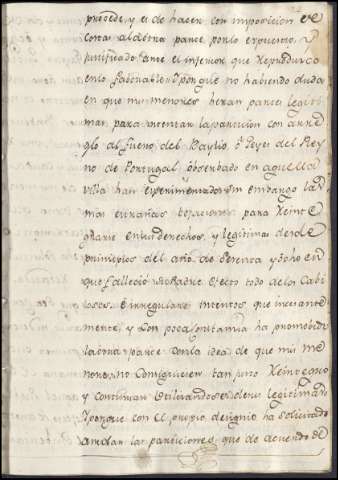 procede, y es de hacer con imposicion de
costas al dema parte por lo expuesto, y
justificado ante el inferior que Reproduzco
en lo faborable = Y porque no habiendo duda
en que mis menores heran partes legiti
mas para intentar la particion con arre
glo al fuero del Baylio, ò Leyes del Rey
no de Portugal observado en aquella
villa han experimentado sin embargo las
mas estrañas bejaciones para Reinte
grarse en sus derechos, y legitimas desde
principios del año de setenta y ocho en
que fallecio su Padre. Efecto todo de los Cabi
losos e irregulares intentos, que incesante
mente, y con poca sustancia ha promobido
la contraparte con la idea de que mis me
nores no consiguiesen tan justo Reintegro
y continuar utilizandose de sus legitimas =
Y porque con el propio designio ha solicitado
anular las particiones, que de acuerdo de